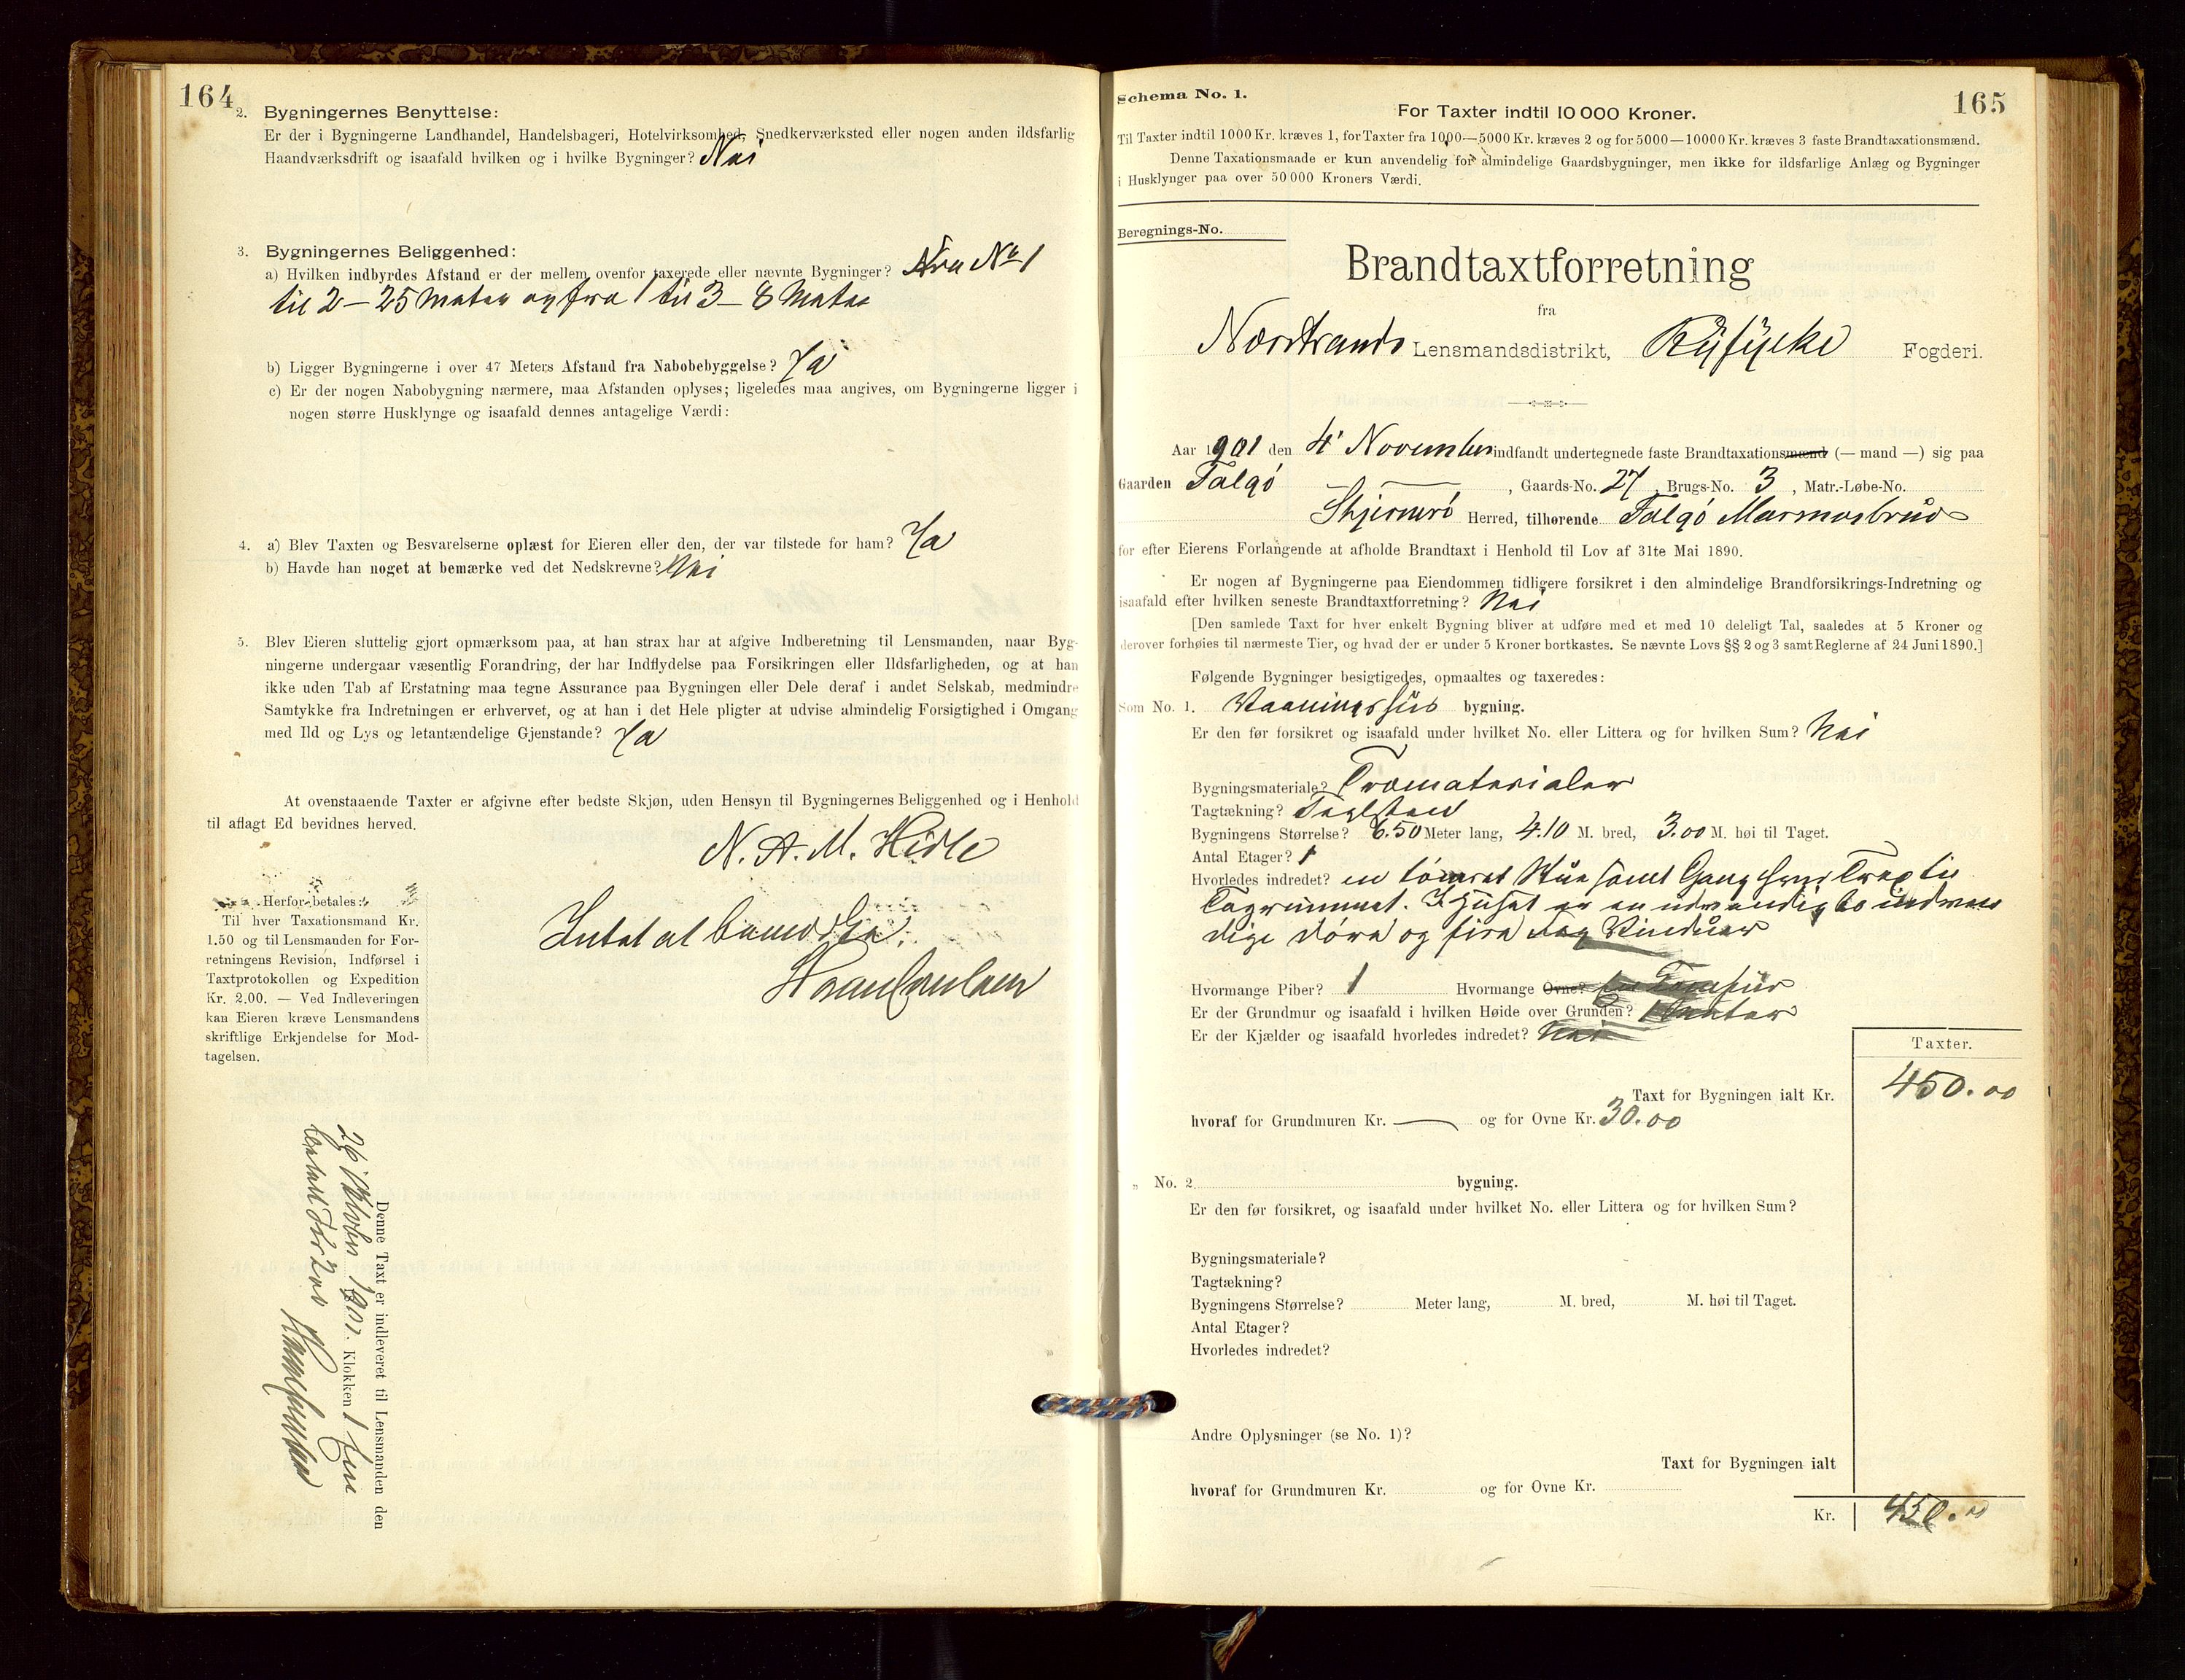 164
2. Bygningernes Benyttelse:
Er der i Bygningerne Landhandel, Handelsbageri, Hotelvirksomhed, Snedkerværksted eller nogen anden ildsfarlig
Haandværksdrift og isaafald hvilken og i hvilke Bygninger? Nei
3. Bygningernes Beliggenhed:
a) Hvilken indbyrdes Afstand er der mellem ovenfor taxerede eller nævnte Bygninger? Fra No 1
til 2 – 25 Meter og fra 1 til 3 – 8 Meter
b) Ligger Bygningerne i over 47 Meters Afstand fra Nabobebyggelse? Ja
c) Er der nogen Nabobygning nærmere, maa Afstanden oplyses; ligeledes maa angives, om Bygningerne ligger i
nogen større Husklynge og isaafald dennes antagelige Værdi:
4. a) Blev Taxten og Besvarelserne oplæst for Eieren eller den, der var tilstede for ham? Ja
b) Havde han noget at bemærke ved det Nedskrevne? Nei
5. Blev Eieren sluttelig gjort opmærksom paa, at han strax har at afgive Indberetning til Lensmanden, naar Byg-
ningerne undergaar væsentlig Forandring, der har Indflydelse paa Forsikringen eller Ildsfarligheden, og at han
ikke uden Tab af Erstatning maa tegne Assurance paa Bygningen eller Dele deraf i andet Selskab, medmindre
Samtykke fra Indretningen er erhvervet, og at han i det Hele pligter at udvise almindelig Forsigtighed i Omgang
med Ild og Lys og letantændelige Gjenstande? Ja
At ovenstaaende Taxter er afgivne efter bedste Skjøn, uden Hensyn til Bygningernes Beliggenhed og i Henhold
til aflagt Ed bevidnes herved.
N. A. M. Hidle
Intet at bemerke.
Herfor betales:
Til hver Taxationsmand Kr.
1.50 og til Lensmanden for For-
retningens Revision, Indførsel i
Taxtprotokollen og Expedition
Kr. 2.00. — Ved Indleveringen
kan Eieren kræve Lensmandens
skriftlige Erkjendelse for Mod-
tagelsen.
Denne Taxt er indleveret til Lensmanden den
1901. Klokken 1
betalt Kr 2.00
165
Schema No. 1.
For Taxter indtil 10 000 Kroner.
Til Taxter indtil 1000 Kr. kræves 1, for Taxter fra 1000—5000 Kr. kræves 2 og for 5000—10000 Kr. kræves 3 faste Brandtaxationsmænd.
Denne Taxationsmaade er kun anvendelig for almindelige Gaardsbygninger, men ikke for ildsfarlige Anlæg og Bygninger
i Husklynger paa over 50 000 Kroners Værdi.
Beregnings-No.
Brandtaxtforretning
fra
Nærstrands Lensmandsdistrikt, Ryfylke Fogderi.
Aar 1901 den 4' November indfandt undertegnede faste Brandtaxationsmænd (— mand —) sig paa
Gaarden Talgö , Gaards-No. 27, Brugs-No. 3, Matr.-Løbe-No.
Skjernerö Herred, tilhørende Talgö Marmorbrud
for efter Eierens Forlangende at afholde Brandtaxt i Henhold til Lov af 31te Mai 1890.
Er nogen af Bygningerne paa Eiendommen tidligere forsikret i den almindelige Brandforsikrings-Indretning og
isaafald efter hvilken seneste Brandtaxtforretning? Nei
[Den samlede Taxt for hver enkelt Bygning bliver at udføre med et med 10 deleligt Tal, saaledes at 5 Kroner og
derover forhøies til nærmeste Tier, og hvad der er under 5 Kroner bortkastes. Se nævnte Lovs §§ 2 og 3 samt Reglerne af 24 Juni 1890.]
Følgende Bygninger besigtigedes, opmaaltes og taxeredes:
Som No. 1. Vaaningshus bygning.
Er den før forsikret og isaafald under hvilket No. eller Littera og for hvilken Sum? Nei
Bygningsmateriale? Træmaterialer
Tagtækning? Taglsten
Bygningens Størrelse? 6.50 Meter lang, 4.10 M. bred, 3.00 M. høi til Taget.
Antal Etager? 1
Hvorledes indredet? en tömret Stue samt Gang hvor Trap til
Tagrummet. I Huset er en udvendig to indven
dige döre og fire Fag Vinduer
Hvormange Piber? 1 Hvormange Ovne? en Komfür
Er der Grundmur og isaafald i hvilken Høide over Grunden? 1 Meter
Er der Kjælder og isaafald hvorledes indredet? Nei
Taxter.
Taxt for Bygningen ialt Kr. 450.00
hvoraf for Grundmuren Kr. — og for Ovne Kr. 30.00
„ No. 2 bygning.
Er den før forsikret, og isaafald under hvilket No. eller Littera og for hvilken Sum?
Bygningsmateriale?
Tagtækning?
Bygningens Størrelse? Meter lang, M. bred, M. høi til Taget.
Antal Etager?
Hvorledes indredet?
Andre Oplysninger (se No. 1)?
Taxt for Bygningen ialt
hvoraf for Grundmuren Kr. og for Ovne Kr.
Kr. 450.00